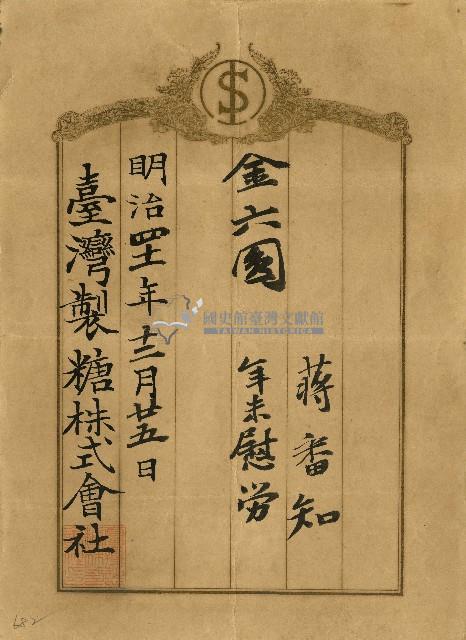 蔣番知
金六圓 年末慰労
明治四十一年十二月廿五日
臺灣製糖株式會社
國史館臺灣文獻館
TAIWAN HISTORICA
682